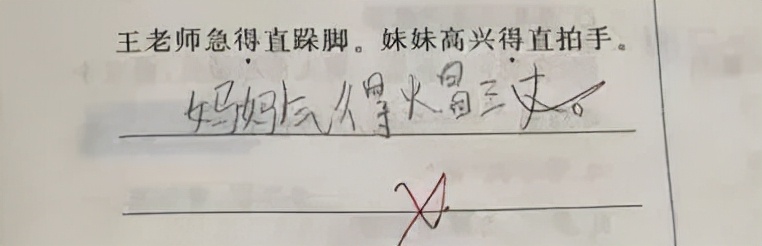 王老师急得直跺脚。妹妹高兴得直拍手。
妈妈气得火冒三丈。